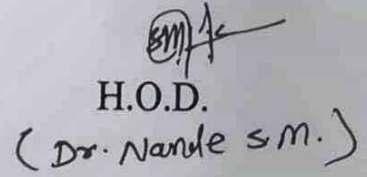 H.O.D.
(Dr. Nande S.M.)